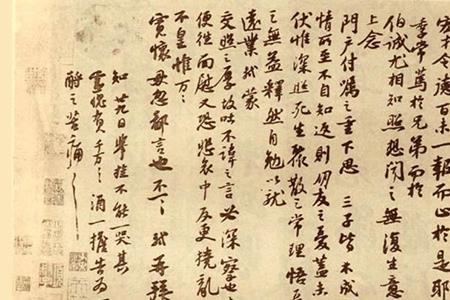 宏才令德百未一報而止於是耶
季常篤於兄弟而於
伯誠尤相知照想聞之無復生意
上念
門戶付囑之重下思三子皆不成
情所至不自知返則朋友之憂蓋未
伏惟深照死生聚散之常理悟憂
之無益釋然自勉以就
遠業軾蒙
交照之厚故吐不諱之言必深察也
便往面慰又恐悲哀中反更撓亂
不皇惟万万
寬懷毋忽鄙言也不一一軾再拜
知廿九日舉掛不能一哭其
靈愧負千万千万酒一擔告為一
酹之苦痛苦痛